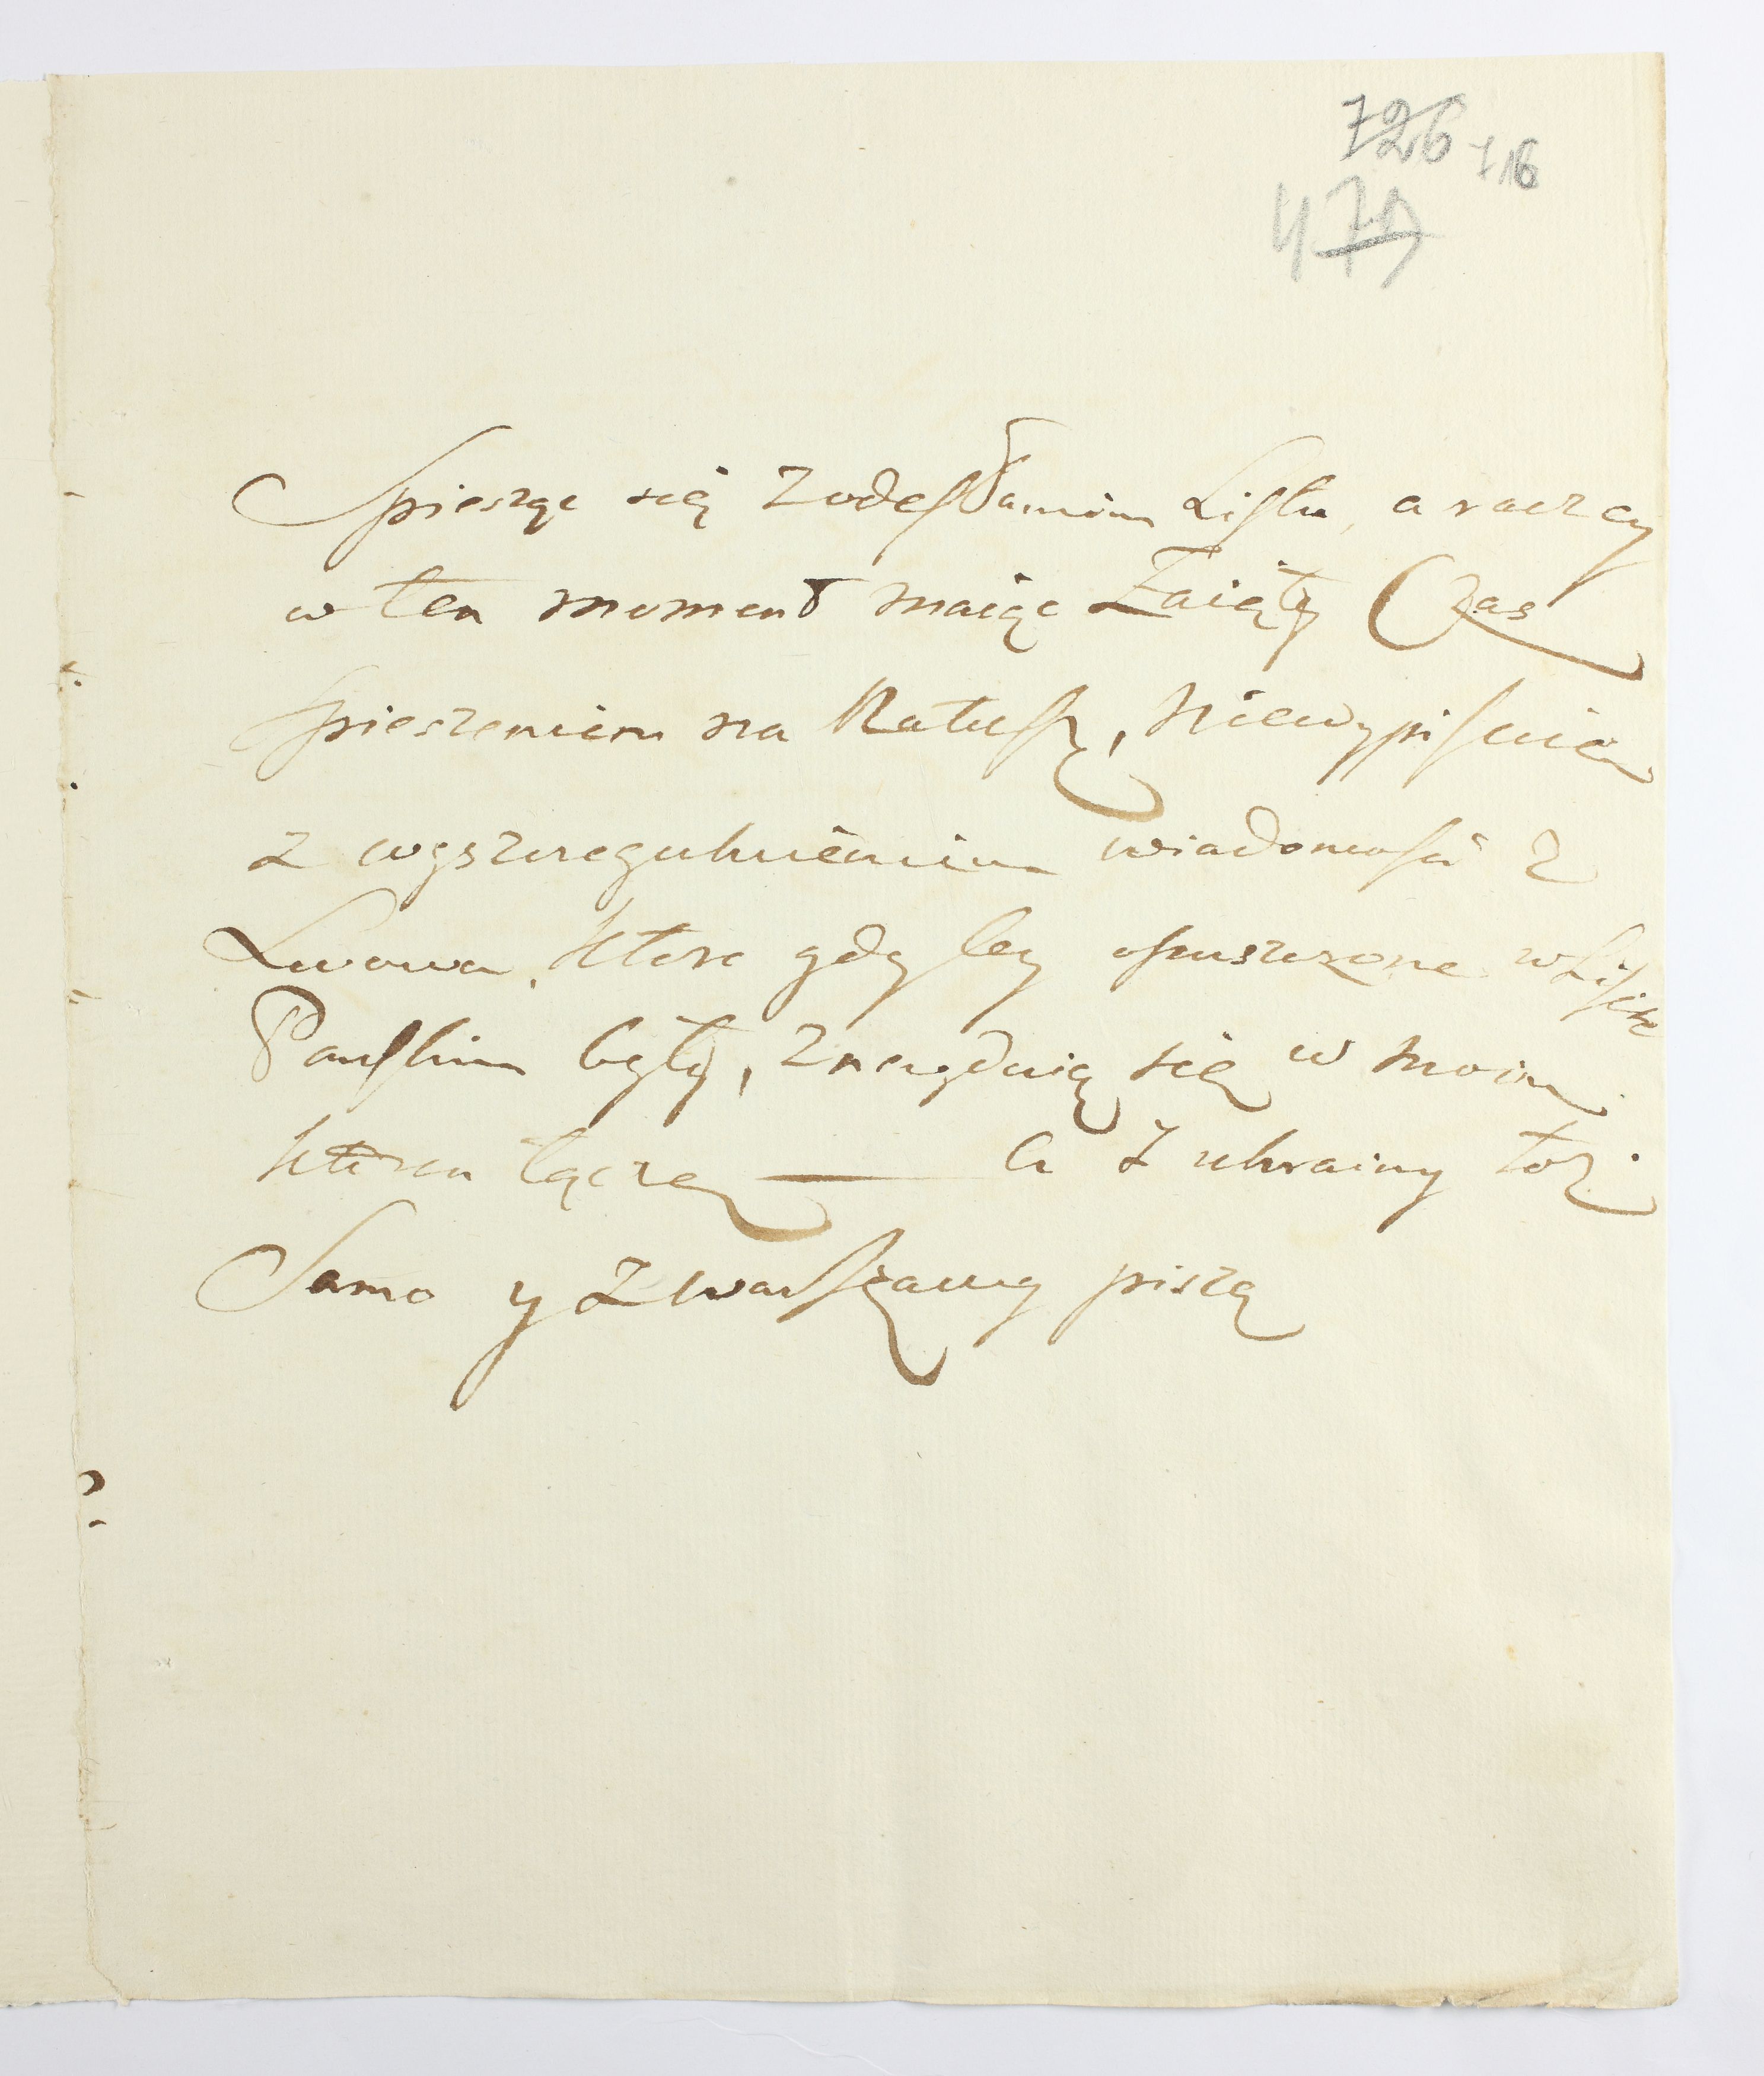 726 716
479
Spiesząc się z odesłaniem Listu, a raczey
w ten moment maiąc Zaięty Czas
spieszeniem na Ratusz, Niewypisuię
z wyszczegulnieniem wiadomości z
Lwowa, ktore gdy by opuszczone w Liscie
Panskim były, znayduią się w moim
ktoren łączę — a z ukrainy toż
Samo y z warszawy piszą